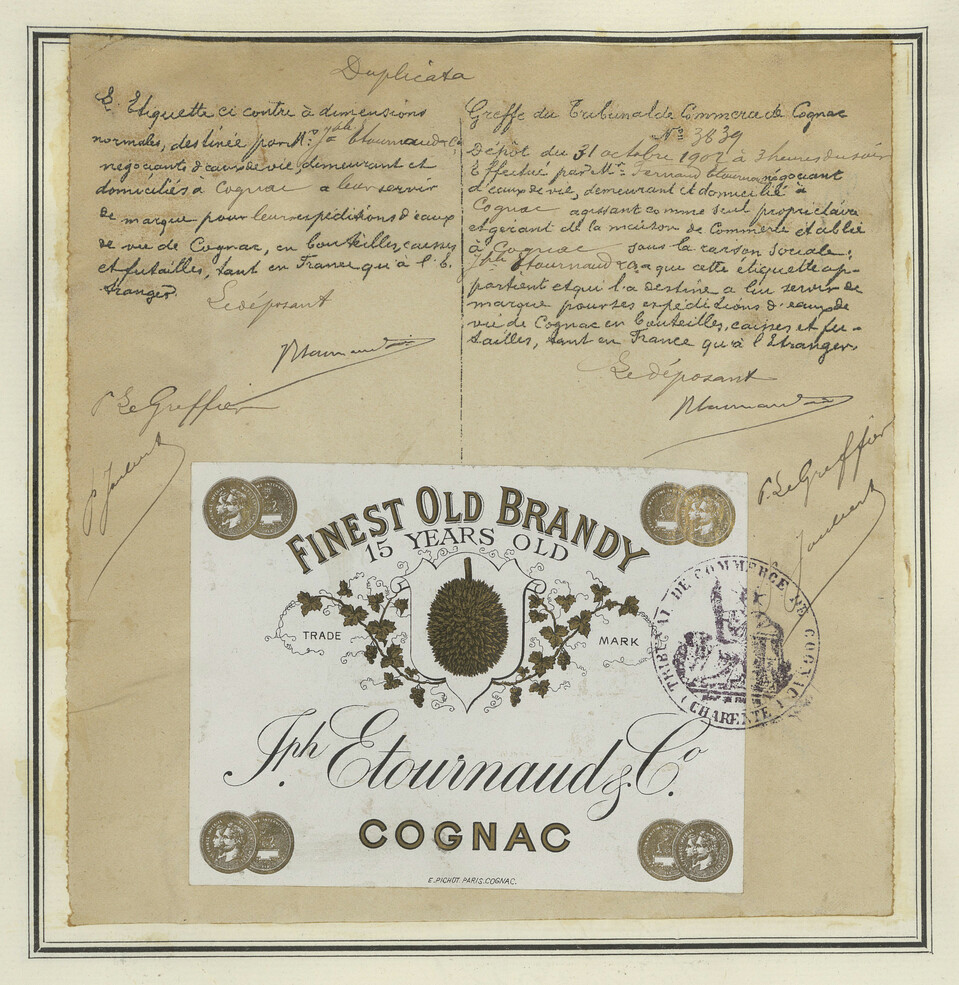 Duplicata
L'Etiquette ci contre à dimensions
normales, destinée par Mrs Jph Etournaud & Co
négociants d'eaux de vie, demeurant et
domiciliés à Cognac a leur servir
de marque pour leurs expéditions d'eaux
de vie de Cognac, en bouteilles, caisses
et futailles, tant en France qu'à l'E-
tranger.
Le déposant
Etournaud
P. Le Greffier
Greffe du Tribunal de Commerce de Cognac
No 3839
Dépôt du 31 octobre à 3 heures du soir
Effectué par Mr Fernand Etournaud négociant
d'eaux de vie, demeurant et domicilié à
Cognac agissant comme seul propriétaire
et gérant de la maison de Commerce établie
à Cognac sous la raison sociale:
Jph Etournaud & Co a que cette étiquette ap-
partient et qui l'a destine a lui servir de
marque pour ses expéditions d'eaux de
vie de Cognac en bouteilles, caisses et fu-
tailles, tant en France qu'à l'Etranger.
Le déposant
Etournaud
P. Le Greffier
FINEST OLD BRANDY
15 YEARS OLD
TRADE MARK
Jph Etournaud & Co.
COGNAC
E. PICHOT. PARIS. COGNAC.
TRIBUNAL DE COMMERCE DE COGNAC
(CHARENTE)